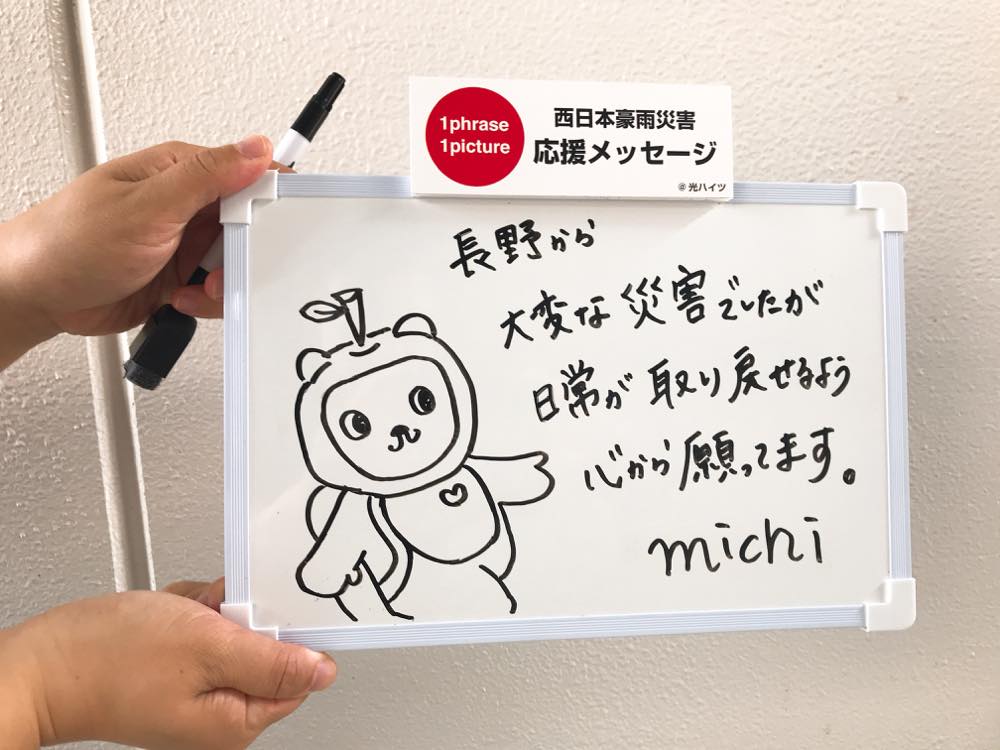 1phrase
1picture
西日本豪雨災害
応援メッセージ
@光ハイツ
長野から
大変な災害でしたが
日常が取り戻せるよう
心から願ってます。
michi